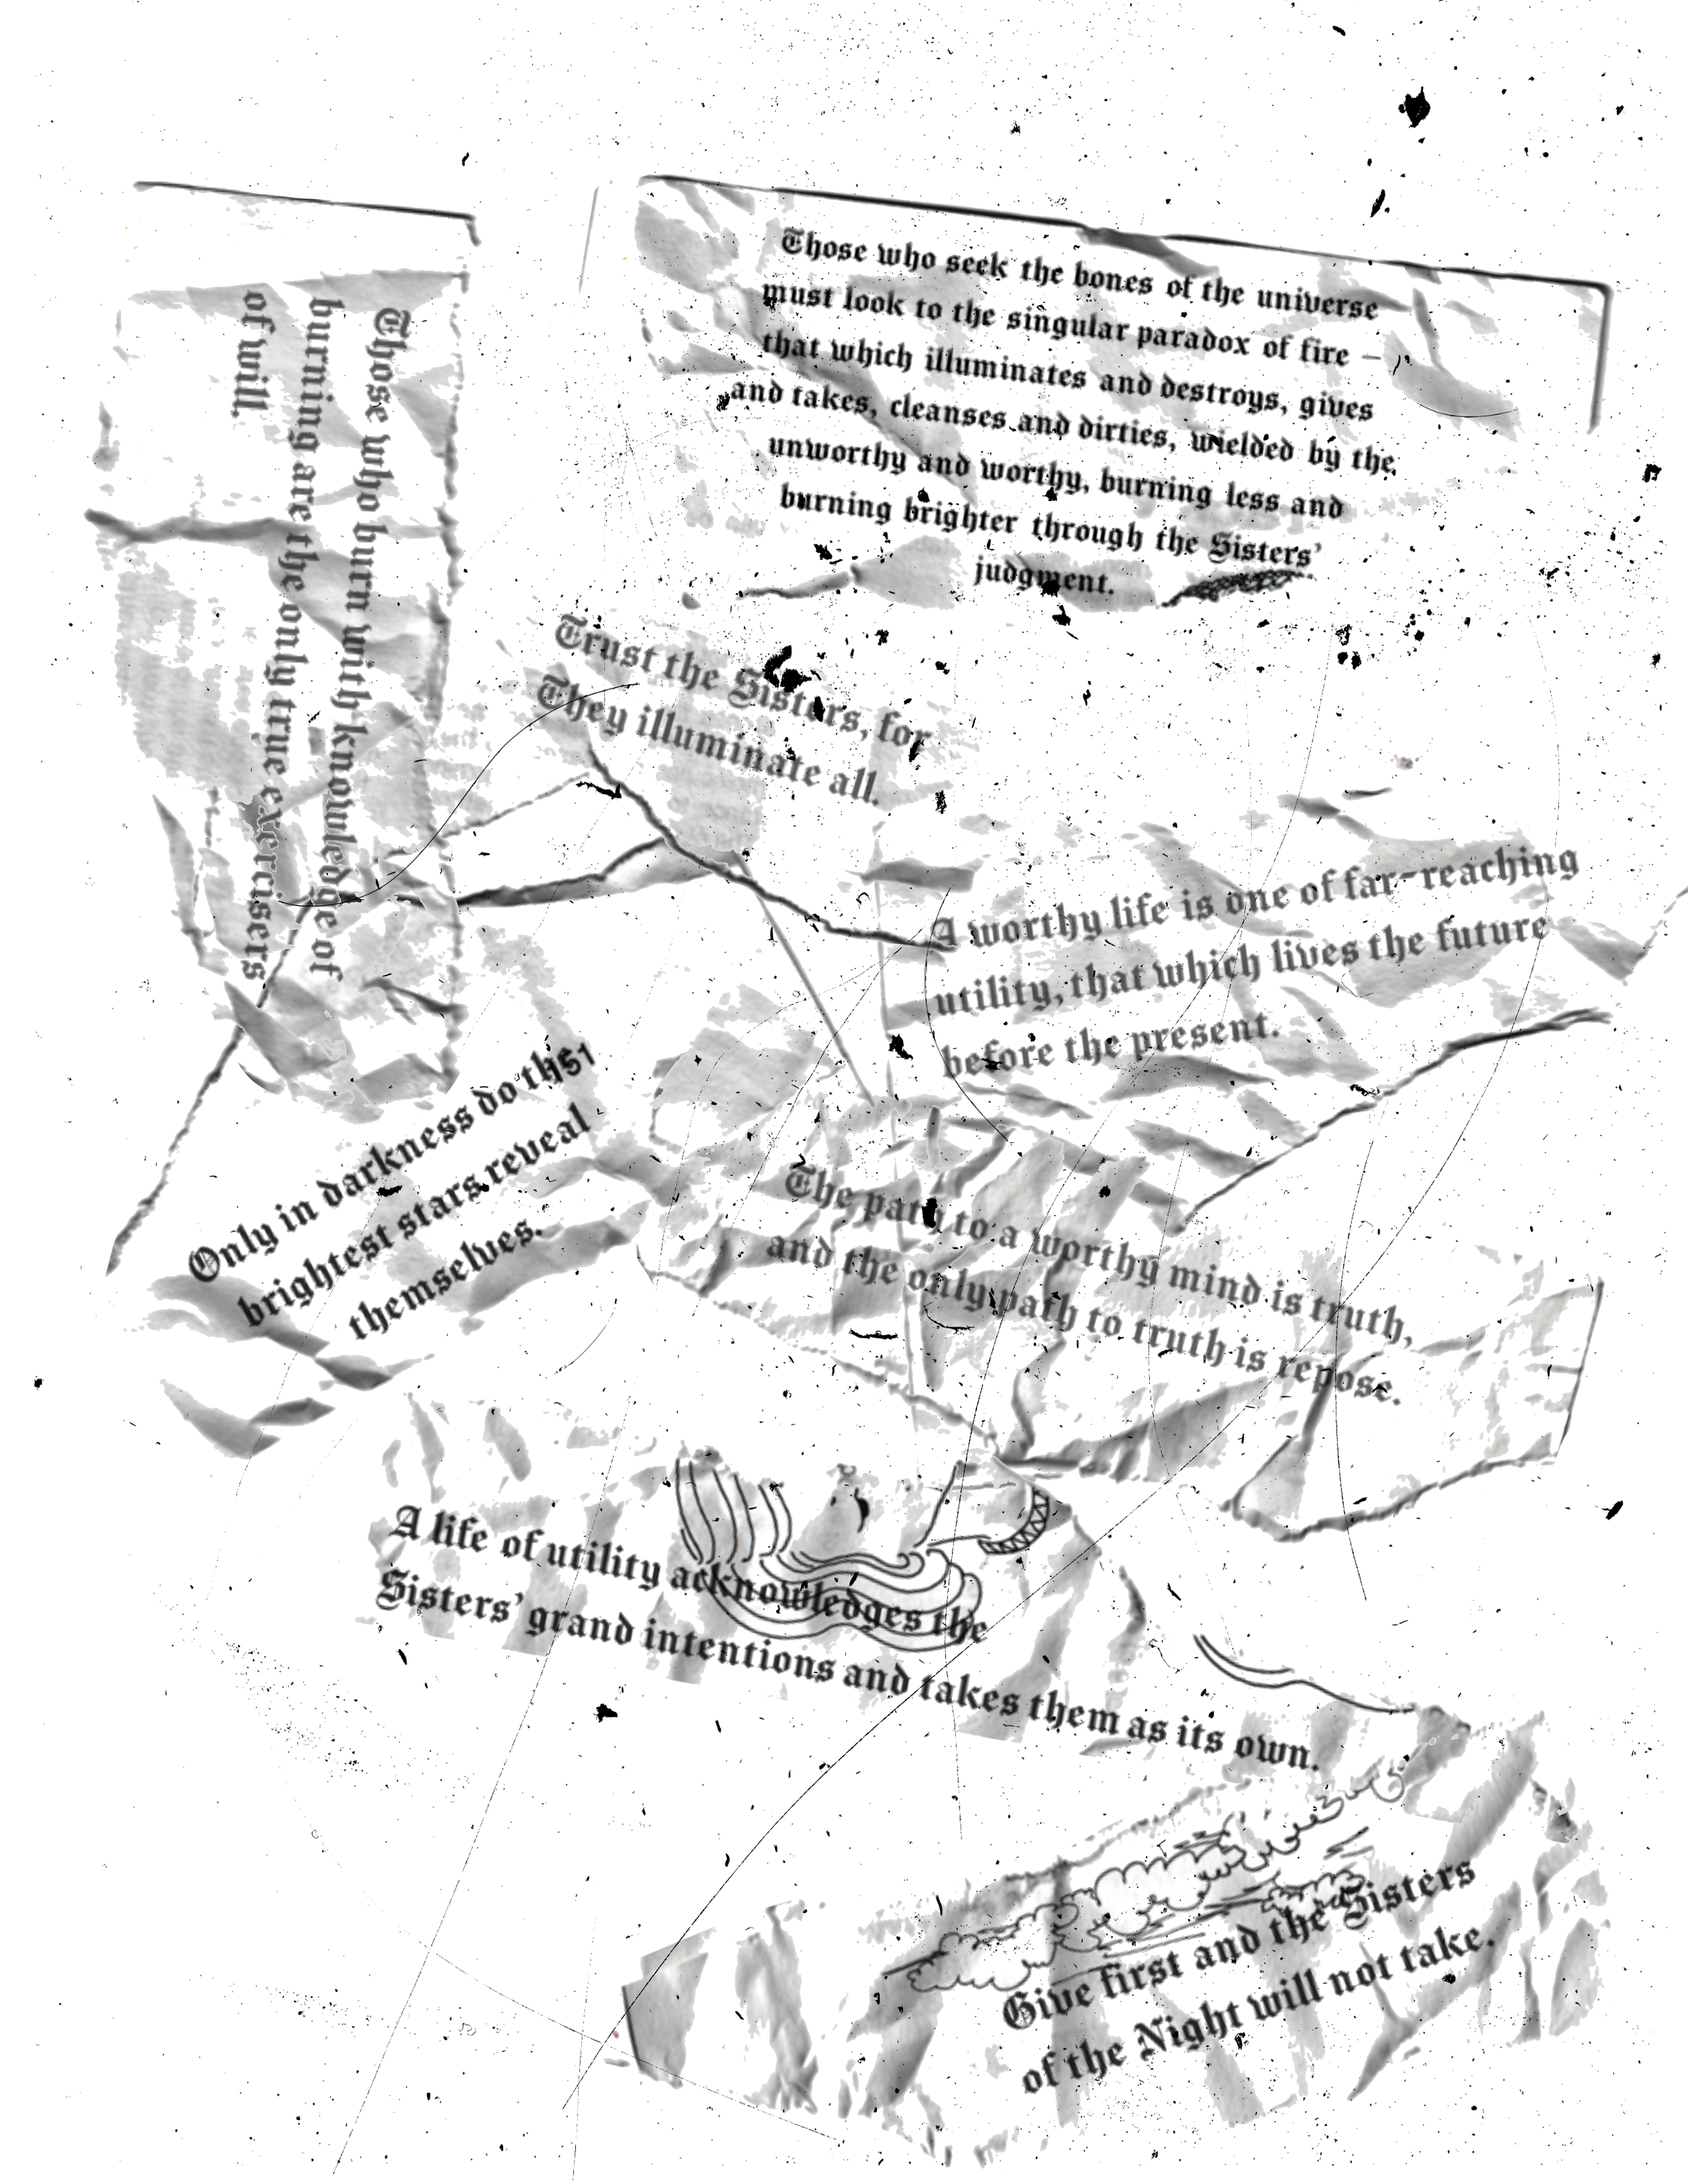 Those who seek the bones of the universe
must look to the singular paradox of fire –
that which illuminates and destroys, gives
and takes, cleanses and dirties, wielded by the
unworthy and worthy, burning less and
burning brighter through the Sisters'
judgment.
Those who burn with knowledge of
burning are the only true exercisers
of will.
Trust the Sisters, for
They illuminate all.
A worthy life is one of far-reaching
utility, that which lives the future
before the present.
Only in darkness do th51
brightest stars reveal
themselves.
The path to a worthy mind is truth,
and the only path to truth is repose.
A life of utility acknowledges the
Sisters' grand intentions and takes them as its own.
Give first and the Sisters
of the Night will not take.